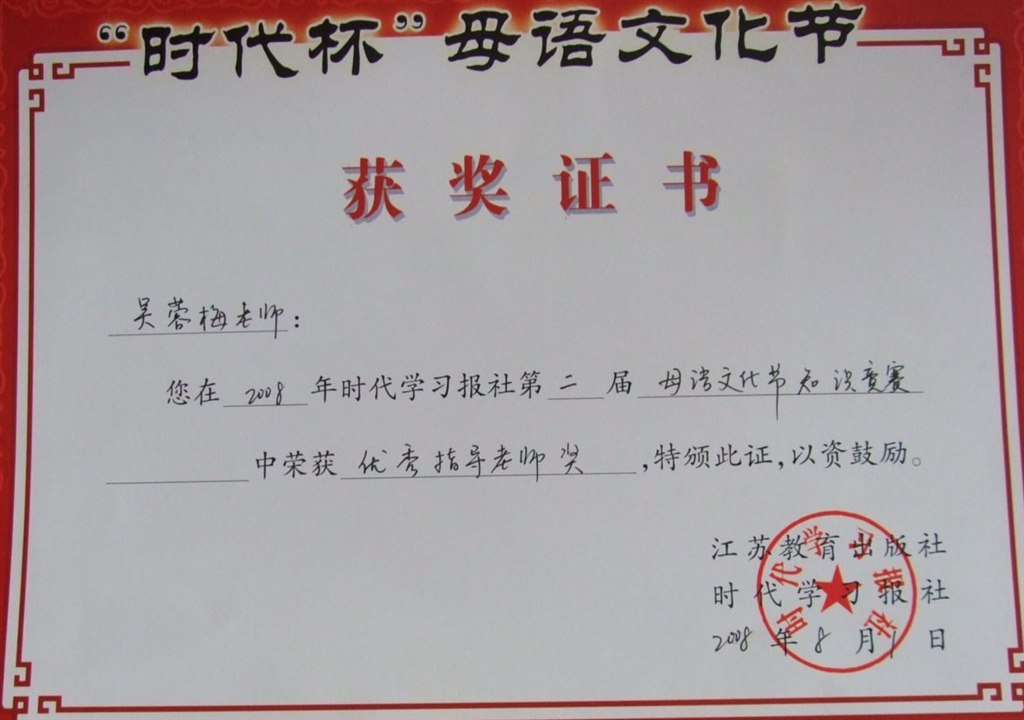 “时代杯”母语文化节
获奖证书
吴蓉梅老师：
您在2008年时代学习报社第二届母语文化节知识竞赛
中荣获优秀指导老师奖，特颁此证，以资鼓励。
江苏教育出版社
时代学习报社
2008年8月1日
时代学习报社